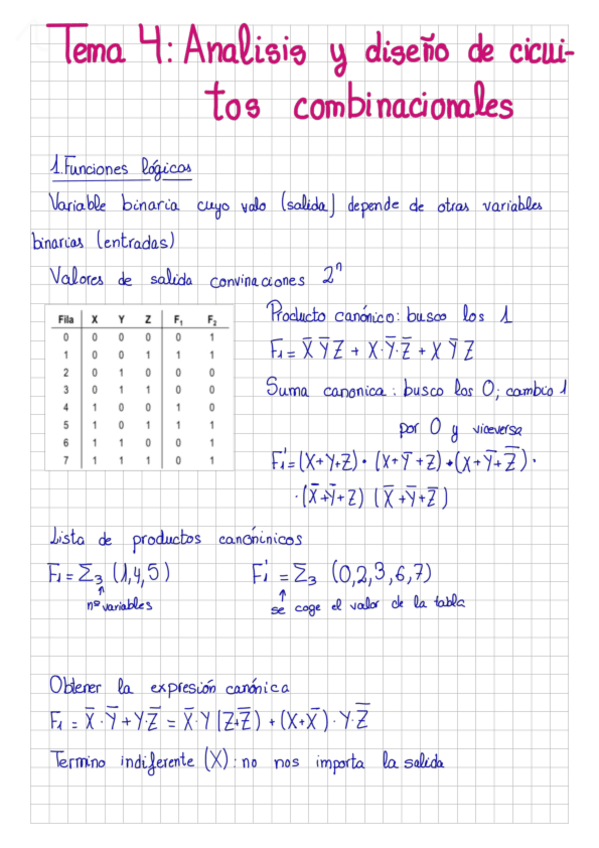 Tema 4: Analisis y diseño de cicui-
tos combinacionales
1. Funciones lógicas
Variable binaria cuyo valo (salida) depende de otras variables
binarias (entradas)
Valores de salida convinaciones 2ⁿ
Fila X Y Z F₁ F₂
0 0 0 0 0 1
1 0 0 1 1 1
2 0 1 0 0 0
3 0 1 1 0 0
4 1 0 0 1 0
5 1 0 1 1 1
6 1 1 0 0 1
7 1 1 1 0 1
Producto canónico: busco los 1
F₁ = X̅ Y̅ Z + X·Y̅·Z̅ + X Y̅ Z
Suma canonica: busco los 0; cambio 1
por 0 y viceversa
F₁' = (X+Y+Z)· (X+Y̅+Z)·(X+Y̅+Z̅)·
·(X̅+Y̅+Z) (X̅+Y̅+Z̅)
Lista de productos canóninicos
F₁ = Σ₃ (1,4,5)
nº variables
F₁' = Σ₃ (0,2,3,6,7)
se coge el valor de la tabla
Obtener la expresión canónica
F₁ = X̅·Y̅+Y·Z̅ = X̅·Y (Z+Z̅) + (X+X̅)·Y·Z̅
Termino indiferente (X): no nos importa la salida